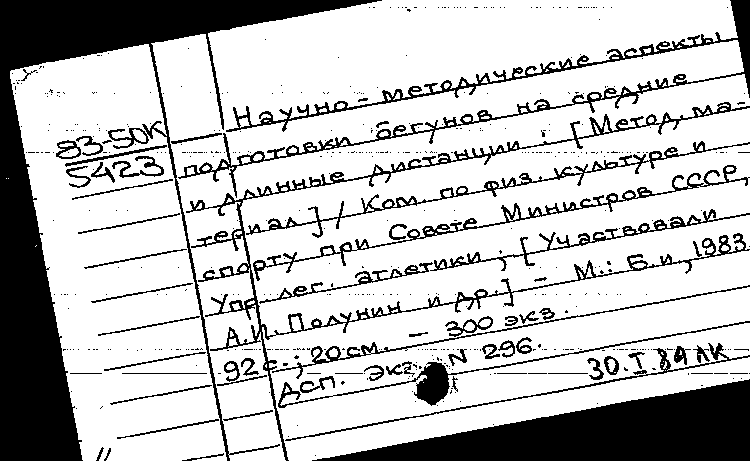 Научно-методические аспекты
83-50К
5423
подготовки бегунов на средние
и длинные дистанции : [Метод. ма-
териал] / Ком. по физ. культуре и
спорту при Совете Министров СССР,
Упр. лег. атлетики ; [Участвовали
А.И. Полунин и др.] - М.: Б.и., 1983
92 с.; 20 см. - 300 экз.
Дсп. экз. N 296.
30.I.84 ЛК